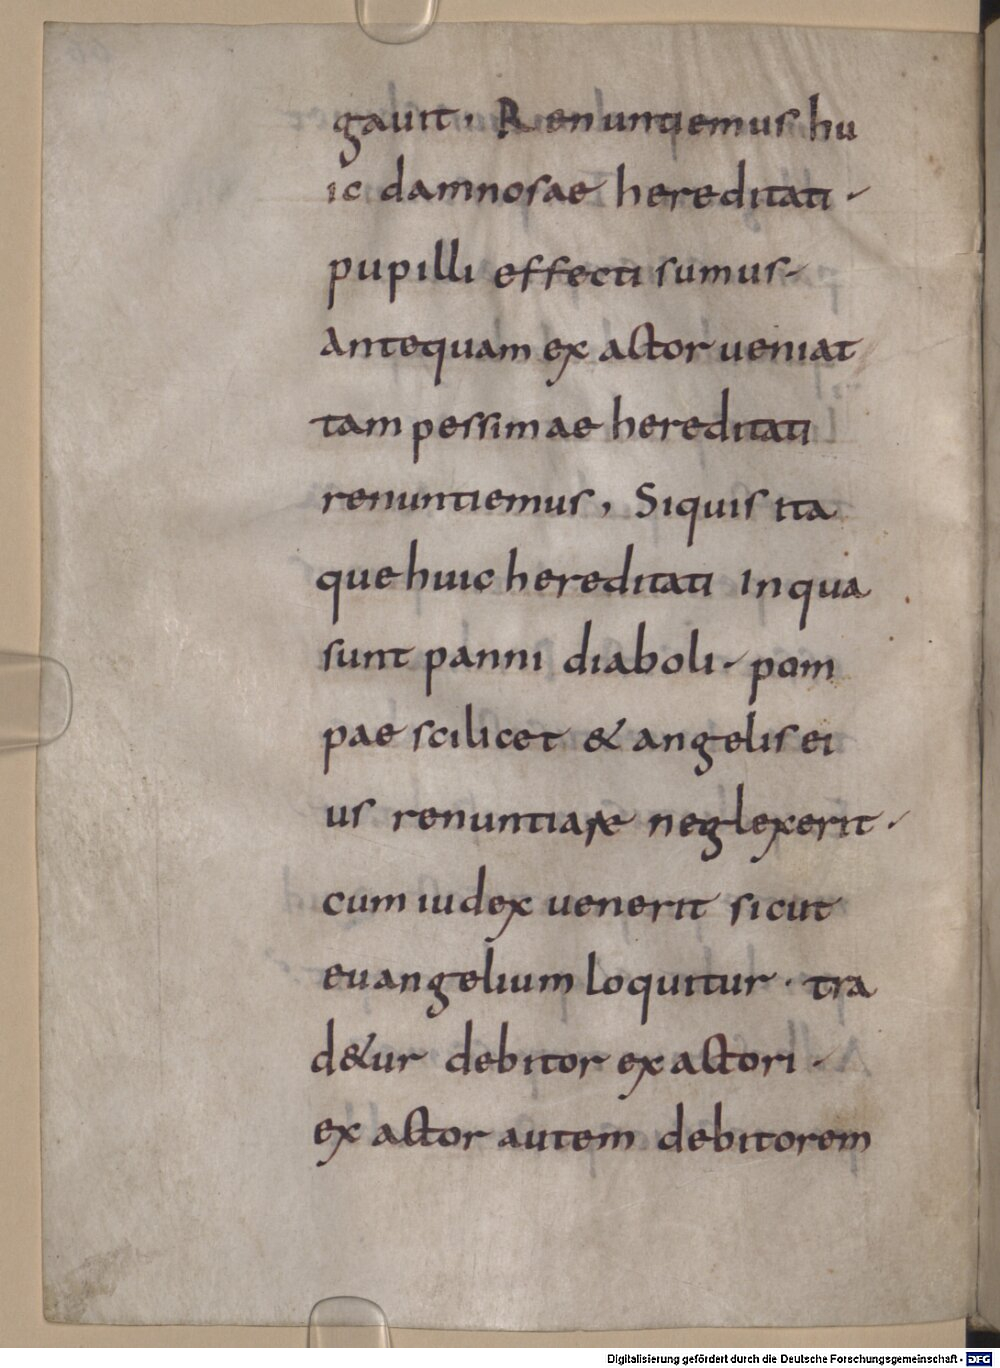 gauit. Renuntiemus hu
ic damnosae hereditati.
pupilli effecti sumus.
Antequam exactor ueniat
tam pessimae hereditati
renuntiemus, Siquis ita
que huic hereditati In qua
sunt panni diaboli. pom
pae scilicet & angelis ei
us renuntiare neglexerit.
cum iudex uenerit sicut
euangelium loquitur. tra
d&ur debitor exactori.
exactor autem debitorem
Digitalisierung gefördert durch die Deutsche Forschungsgemeinschaft - DFG